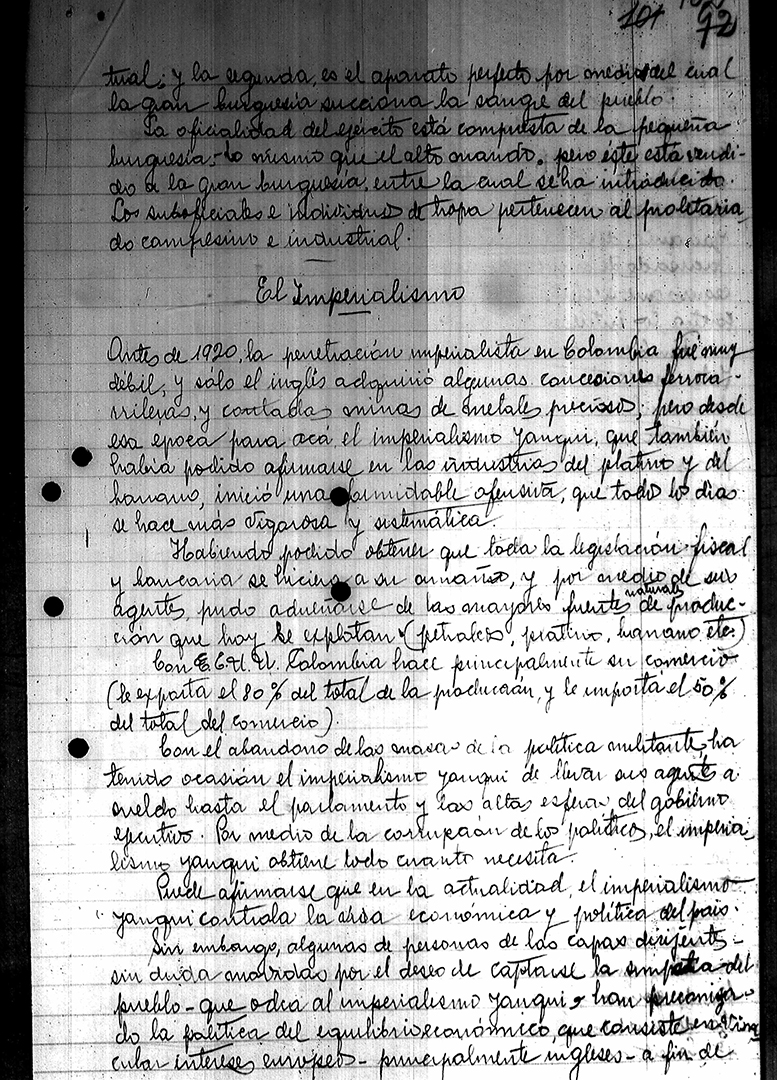 101
92
tual; y la segunda, es el aparato perfecto por medio del cual
la gran burguesía succiona la sangre del pueblo.
La oficialidad del ejército está compuesta de la pequeña
burguesía, lo mismo que el alto mando, pero éste está vendi-
do a la gran burguesía, entre la cual se ha introducido.
Los suboficiales e individuos de tropa pertenecen al proletaria
do campesino e industrial.
El Imperialismo
Antes de 1920, la penetración imperialista en Colombia fué muy
débil, y sólo el inglés adquirió algunas concesiones ferroca-
rrileras, y contadas minas de metales preciosos; pero desde
esa época para acá el imperialismo yanqui, que también
había podido afirmarse en las industrias del platino y del
banano, inició una formidable ofensiva, que todos los dias
se hace más vigorosa y sistemática.
Habiendo podido obtener que toda la legislación fiscal
y bancaria se hiciera a su amaño, y por medio de sus
agentes, pudo adueñarse de las mayores fuentes naturales de produc-
ción que hoy se explotan (petroleos, platino, banano etc.)
Con E.E.U.U. Colombia hace principalmente su comercio
(le exporta el 80% del total de la producción, y le importa el 50%
del total del comercio).
Con el abandono de las masas de la política militante, ha
tenido ocasión el imperialismo yanqui de llevar sus agentes a
sueldo hasta el parlamento y las altas esferas del gobierno
ejecutivo. Por medio de la corrupción de los políticos, el imperia
lismo yanqui obtiene todo cuanto necesita.
Puede afirmarse que en la actualidad, el imperialismo
yanqui controla la vida económica y política del pais.
Sin embargo, algunas de personas de las capas dirijentes -
sin duda movidas por el deseo de captarse la simpatia del
pueblo - que odia al imperialismo yanqui - han preconiza
do la política del equilibrio económico, que consiste en
cular intereses europeos - principalmente ingleses - a fin de